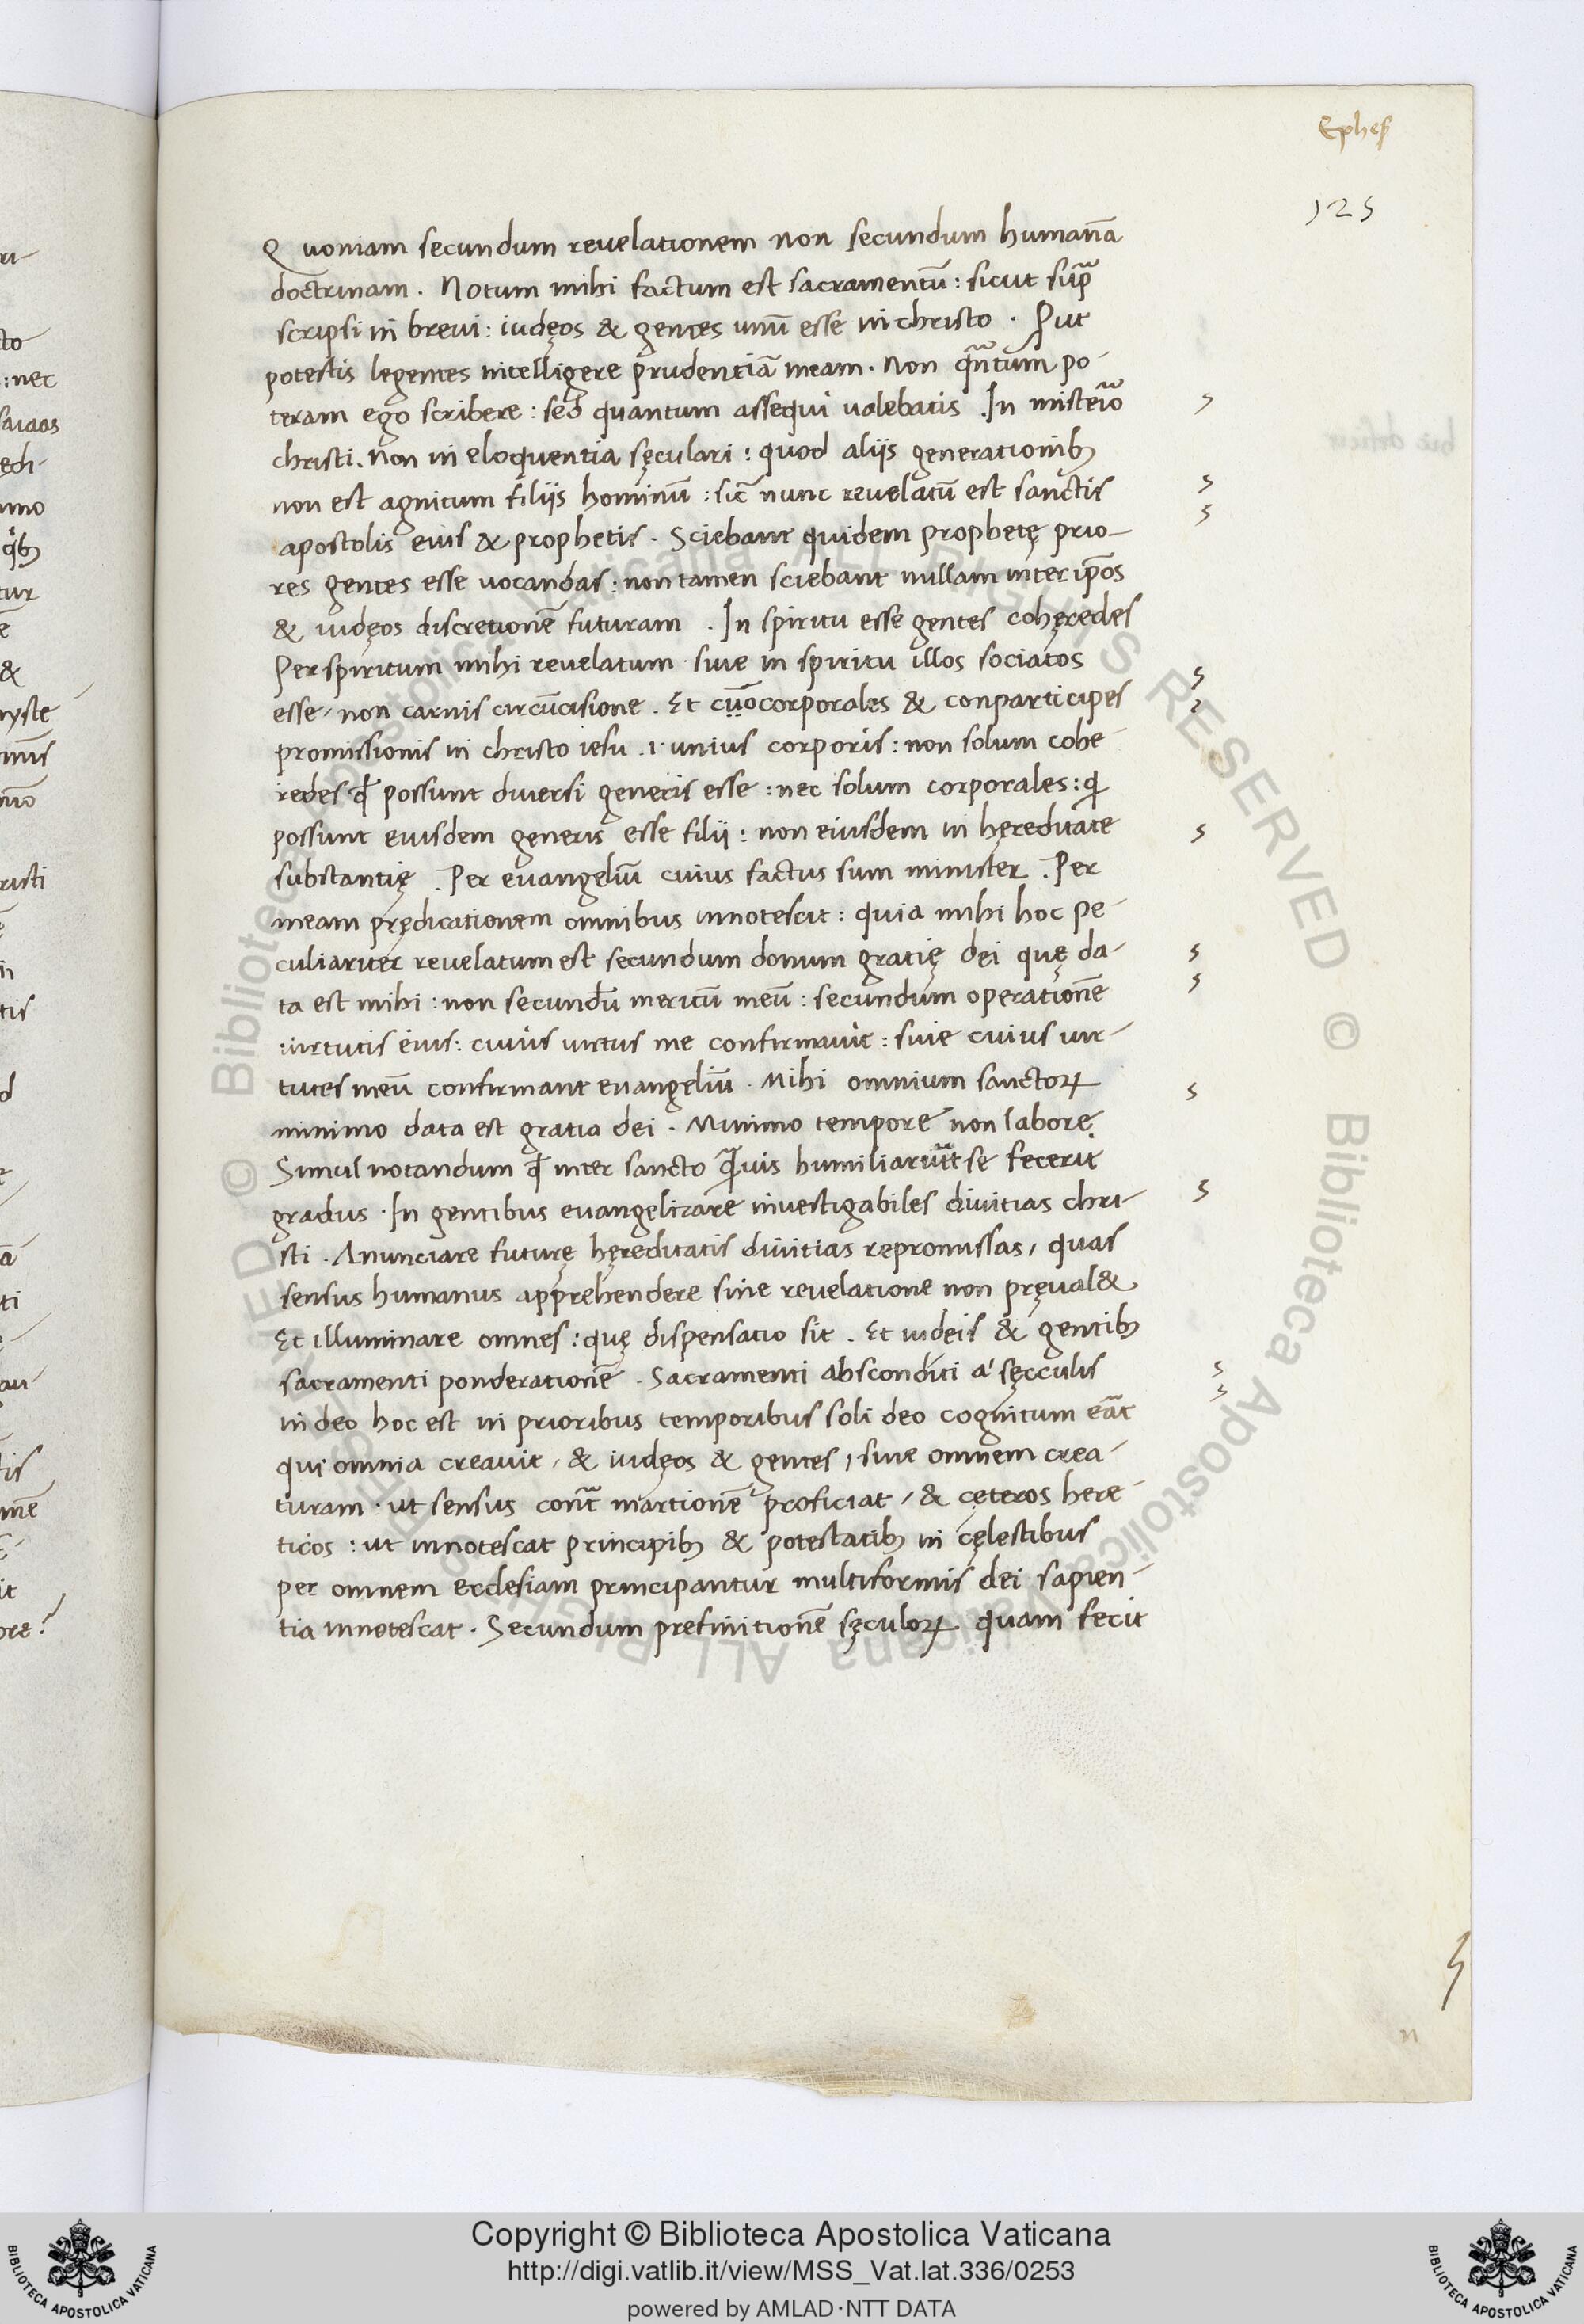 Ephes
125
Quoniam secundum revelationem non secundum humanā
doctrinam. Notum mihi factum est sacramentū: sicut sup̄
scripsi in brevi: iudęos & gentes unū esse in christo. Put
potestis legentes intelligere prudentiā meam. Non qn̄tum po-
teram ego scribere: sed quantum assequi valebatis. In misterio
christi. Non in eloquentia sęculari: quod aliis generationib;
non est agnitum filiis hominū: sic̄ nunc revelatū est sanctis
apostolis eius & prophetis. Sciebant quidem prophetę prio-
res gentes esse vocandas: non tamen sciebant nullam inter ip̄os
& iudęos discretionē futuram. In spiritu esse gentes cohęredes
Per spiritum mihi revelatum sive in spiritu illos sociatos
esse, non carnis circūcisione. Et corporales & conparticipes
promissionis in christo iesu .i. unius corporis: non solum cohe-
redes qđ possunt diversi generis esse: nec solum corporales: q
possunt eiusdem generis esse filii: non eiusdem in hęreditate
substantię. Per evangeliū cuius factus sum minister. Per
meam prędicationem omnibus innotescit: quia mihi hoc pe-
culiariter revelatum est secundum donum gratię dei quę da-
ta est mihi: non secundū meritū meū: secundum operationē
virtutis eius: cuius virtus me confirmavit: sive cuius vir-
tutes meū confirmant evangeliū. Mihi omnium sanctoꝝ
minimo data est gratia dei. Minimo tempore non labore.
Simul notandum qđ inter sancto q̄vis humiliaruntse fecerit
gradus. In gentibus evangelizare investigabiles divitias chri-
sti. Anunciare futurę hęreditatis divitias repromissas, quas
sensus humanus apprehendere sine revelatione non pręval&.
Et illuminare omnes: quę dispensatio sit. Et iudeis & gentib;
sacramenti ponderationē. Sacramenti absconditi a' sęcculis
in deo hoc est in prioribus temporibus soli deo cognitum erat
qui omnia creavit, & iudęos & gentes, sive omnem crea-
turam. ut sensus cont̄ martionē proficiat, & cęteros here-
ticos: ut innotescat principib; & potestatib; in cęlestibus
per omnem ecclesiam principantur multiformis dei sapien-
tia innotescat. Secundum prefinitionē sęculoꝝ quam fecit
Copyright © Biblioteca Apostolica Vaticana
http://digi.vatlib.it/view/MSS_Vat.lat.336/0253
powered by AMLAD·NTT DATA